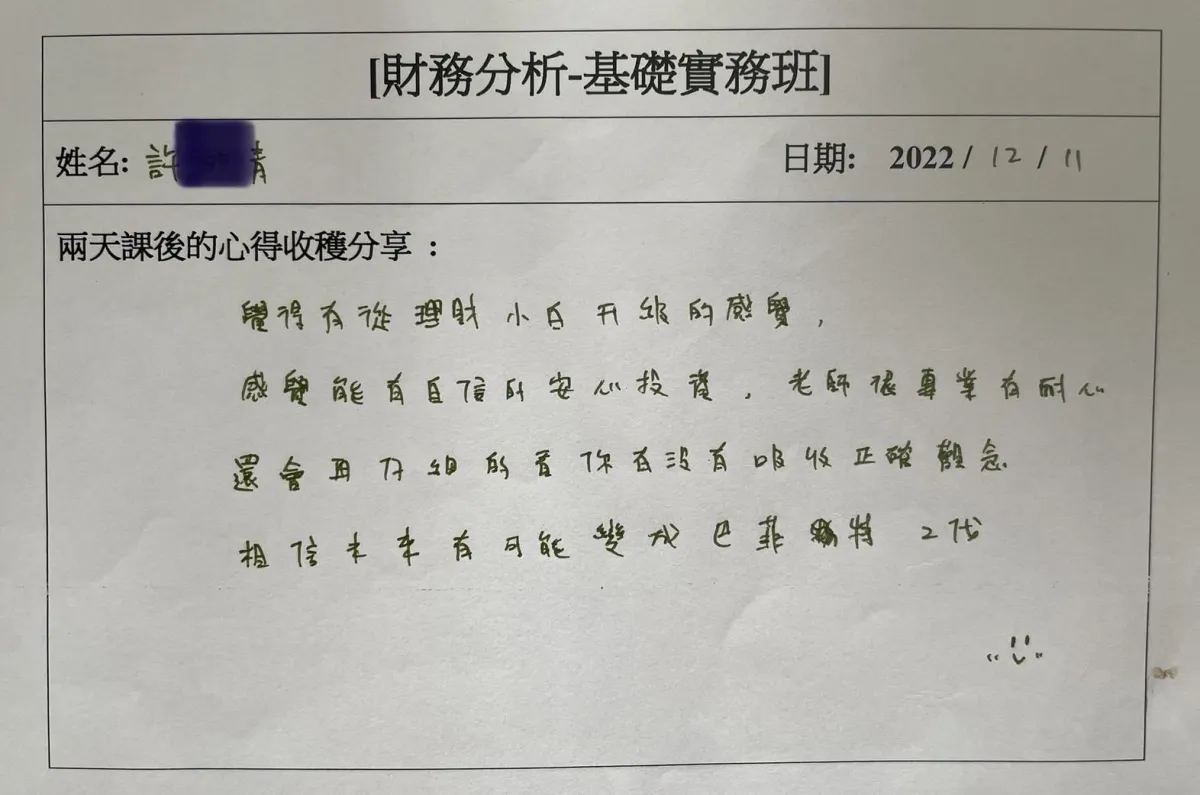 [財務分析-基礎實務班]
姓名: 許 青 日期: 2022 / 12 / 11
兩天課後的心得收穫分享 :
覺得有從理財小白升級的感覺,
感覺能有自信的安心投資, 老師很專業有耐心
還會再仔細的看你有沒有吸收正確觀念
相信未來有可能變成巴菲特 2代